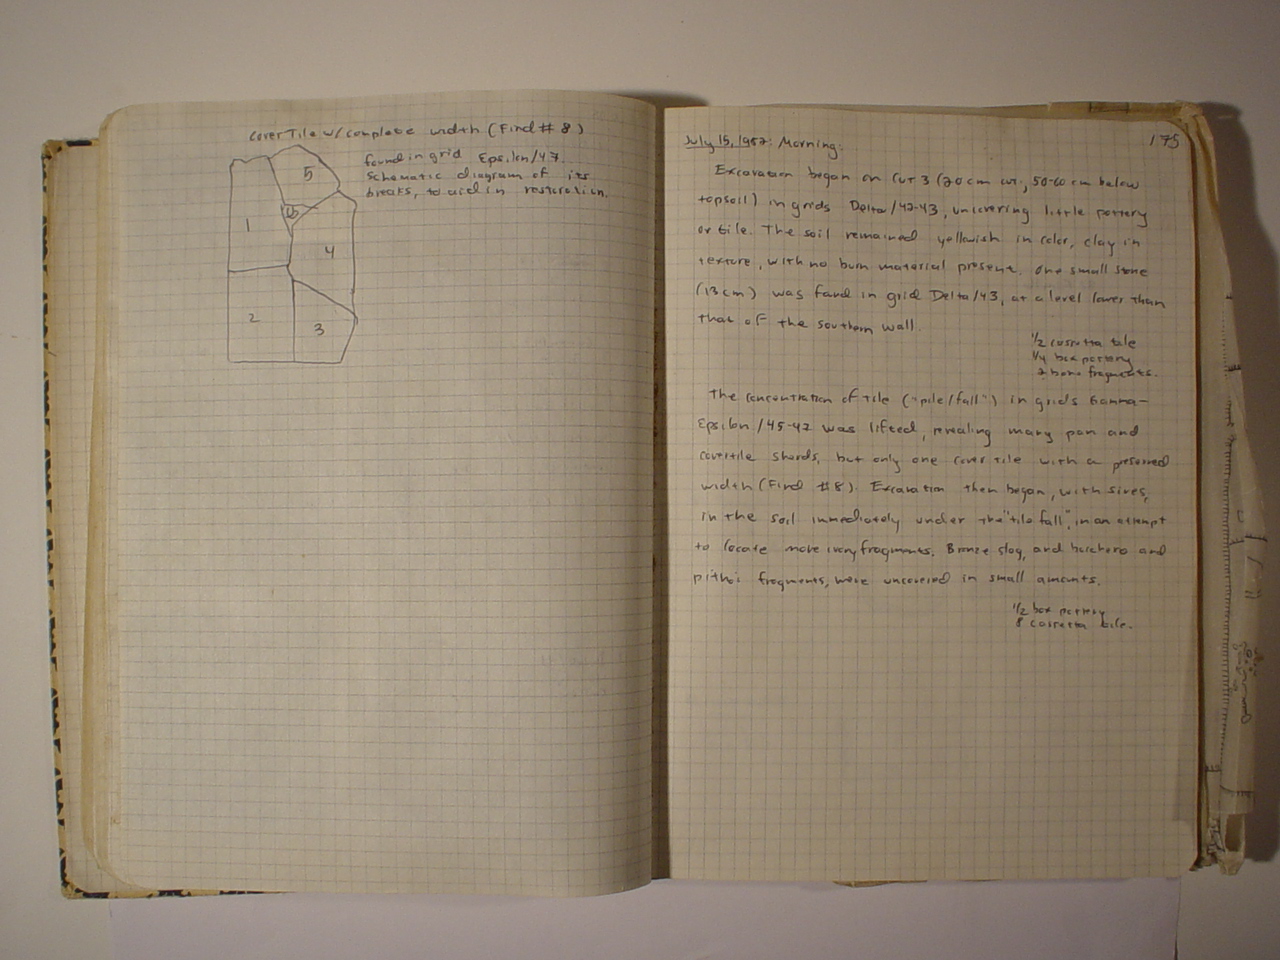 Cover Tile w/ complete width (Find # 8)
found in grid Epsilon/47.
Schematic diagram of its
breaks, to aid in restoration.
5
6
1
4
2
3
175
July 15, 1987: Morning:
Excavation began on Cut 3 (20 cm cut, 50-60 cm below
topsoil) in grids Delta/42-43, uncovering little pottery
or tile. The soil remained yellowish in color, clay in
texture, with no burn material present. One small stone
(13 cm) was found in grid Delta/43, at a level lower than
that of the southern wall.
1/2 tile
1/4 box pottery
2 bone fragments.
The concentration of tile ("pile/fall") in grids Gamma-
Epsilon/45-47 was lifted, revealing many pan and
covertile sherds, but only one cover tile with a preserved
width (Find #8). Excavation then began, with sives,
in the soil immediately under the "tile fall", in an attempt
to locate more ivory fragments. Bronze slag, and bucchero and
pithoi fragments, were uncovered in small amounts.
1/2 box pottery
8 tile.